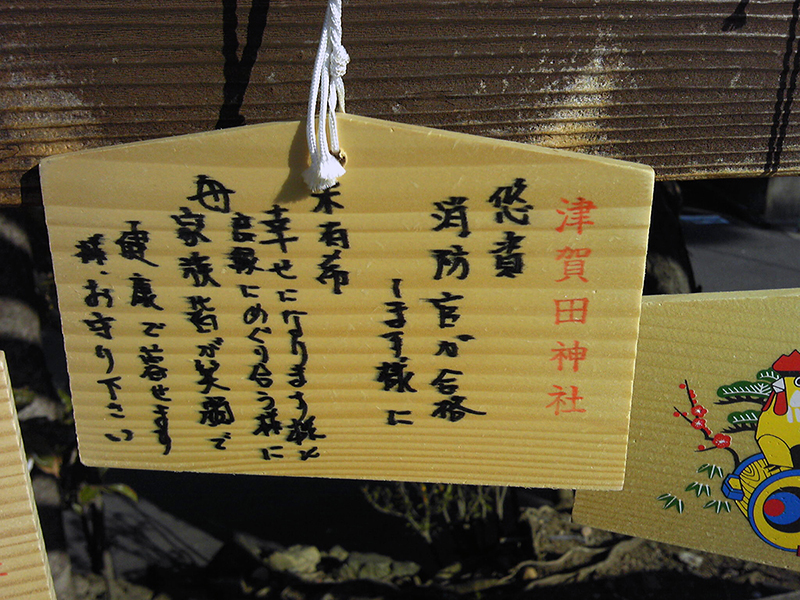 津賀田神社
悠貴
消防官が合格
します様に
未有希
幸せになります様に
良縁にめぐり合う様に
母 家族皆が笑顔で
健康で過せます
様、お守り下さい